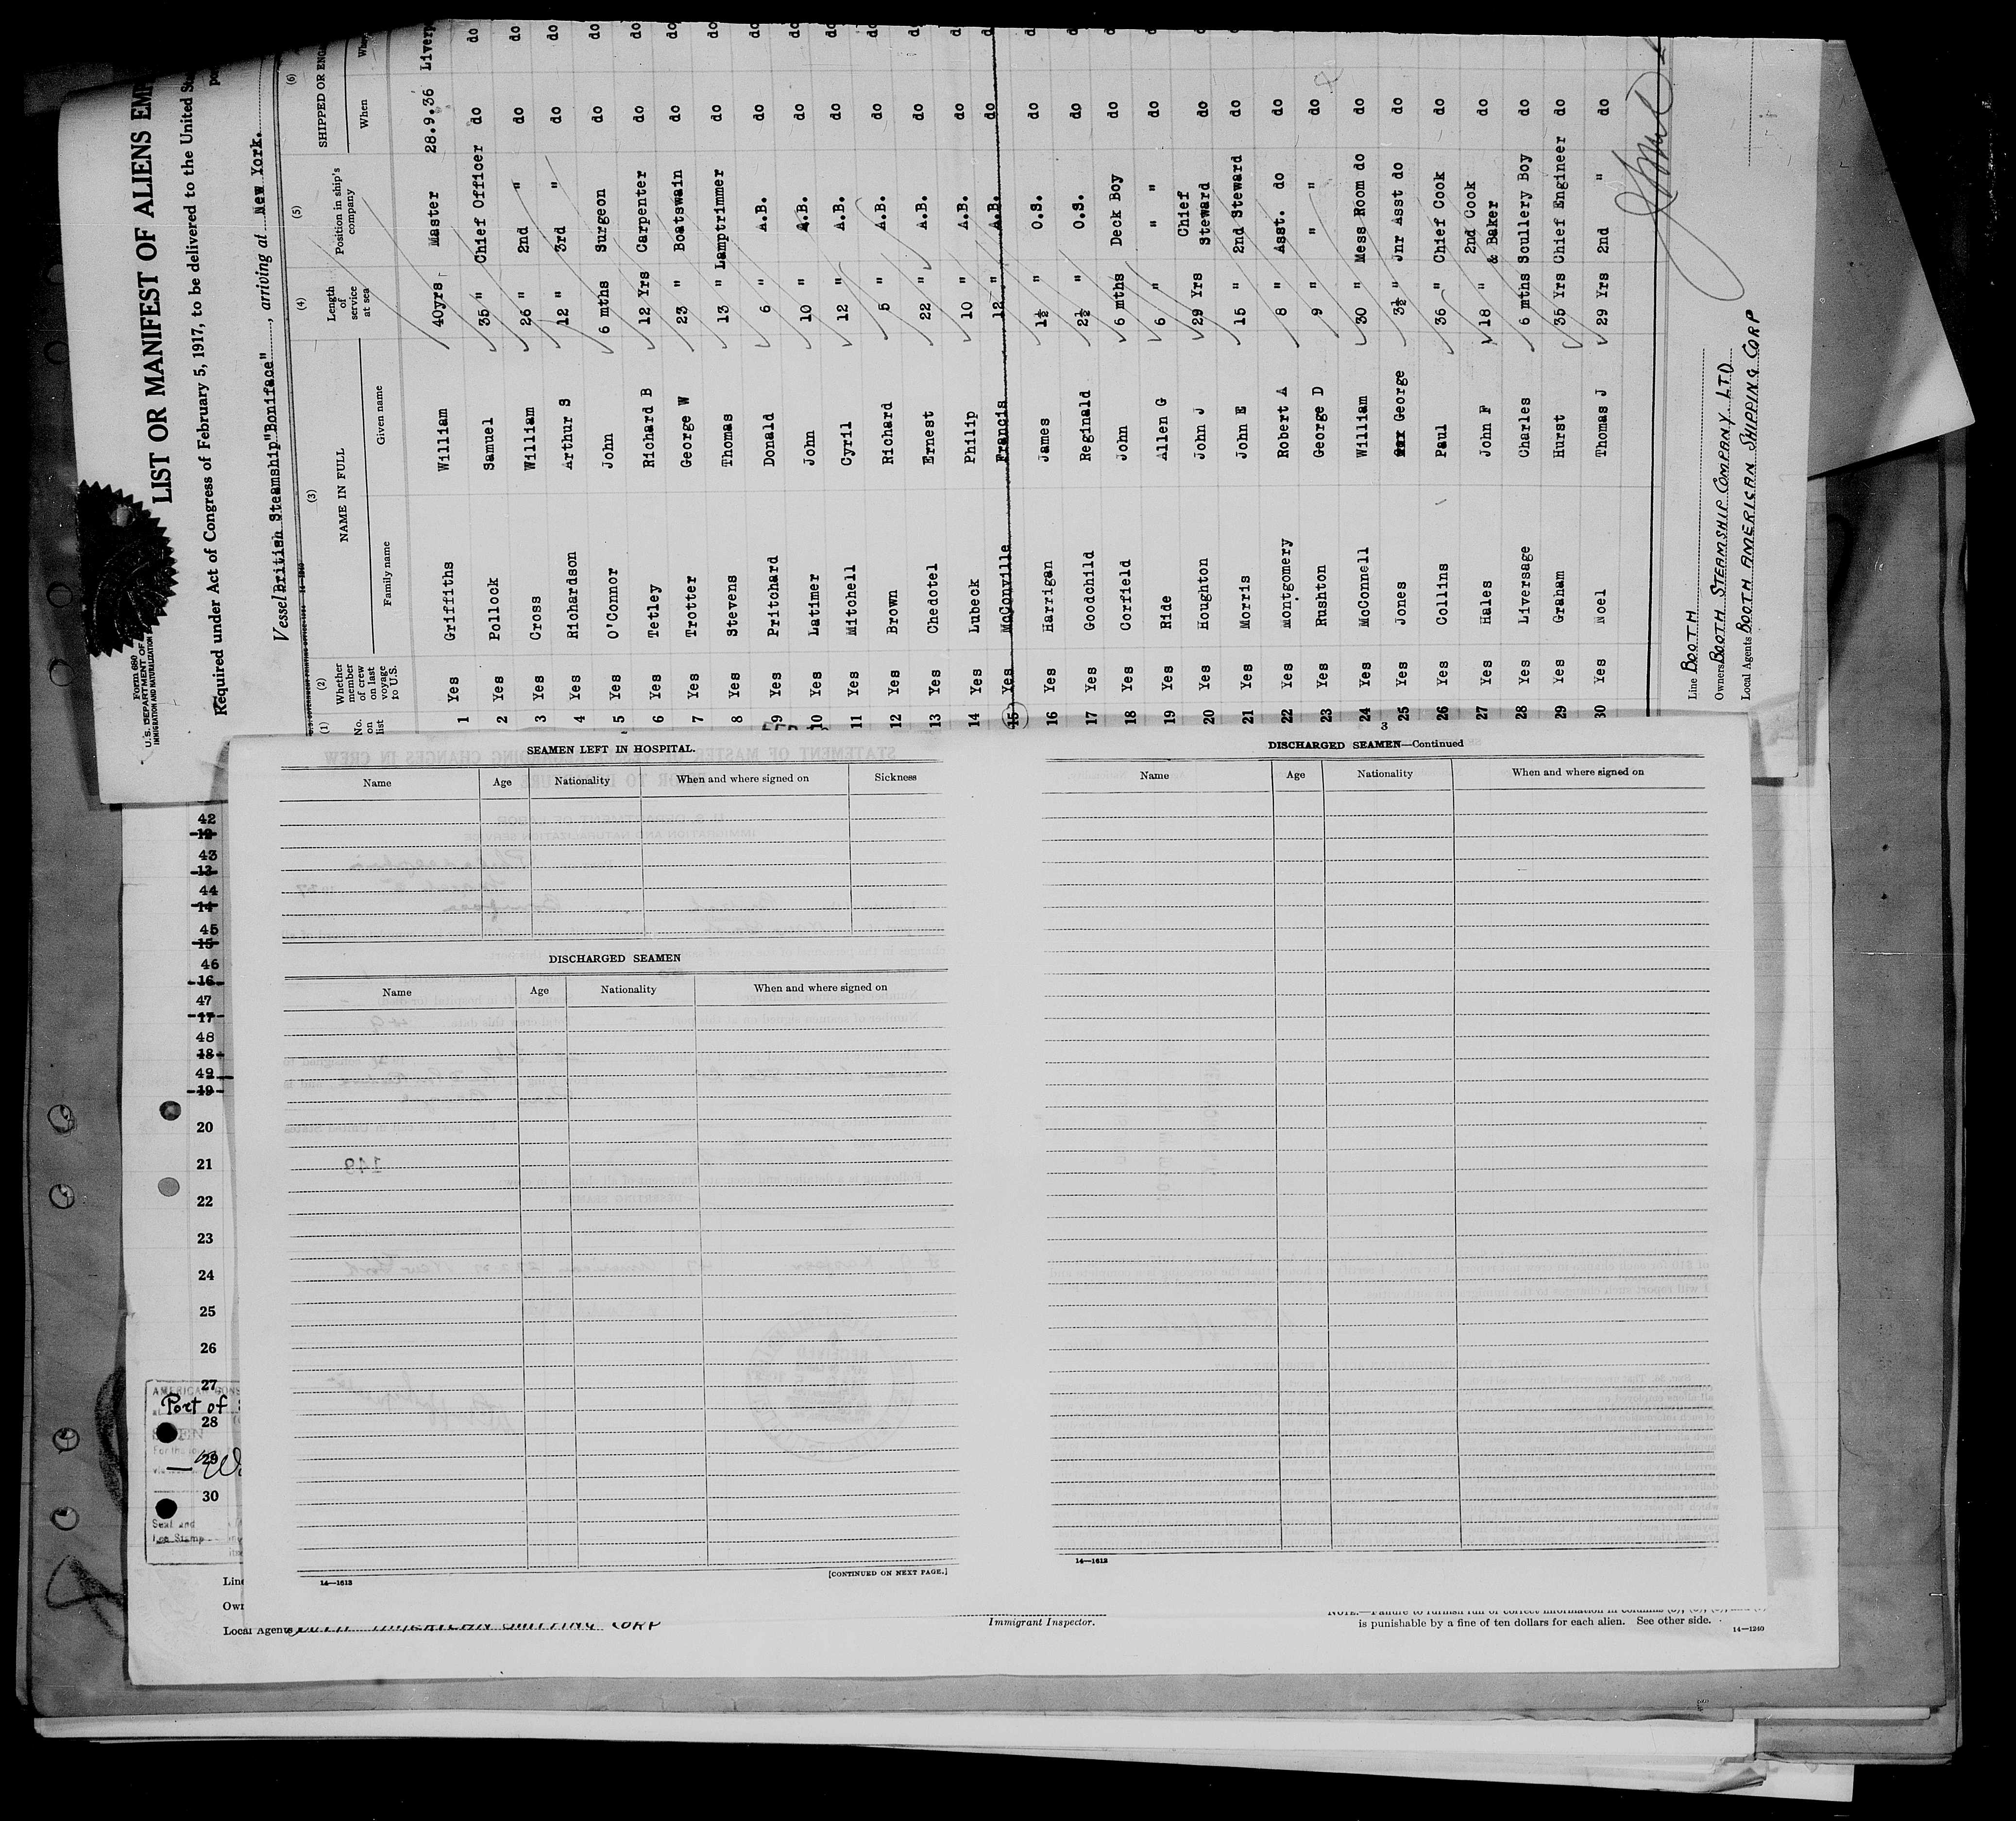 Form 680
U.S. DEPARTMENT OF
IMMIGRATION AND NATURALIZATION
LIST OR MANIFEST OF ALIENS EMP
Required under Act of Congress of February 5, 1917, to be delivered to the United
Vessel British Steamship "Boniface", arriving at New York.
(1) (2) (3) (4) (5) (6)
No. on list
Whether member of crew on last voyage to U.S.
NAME IN FULL
Family name Given name
Length of service at sea
Position in ship's company
SHIPPED OR ENG
When
1 Yes Griffiths William 40yrs Master 28.9.36 Liverp
2 Yes Pollock Samuel 35 " Chief Officer do do
3 Yes Cross William 26 " 2nd " do do
4 Yes Richardson Arthur S 12 " 3rd " do do
5 Yes O'Connor John 6 mths Surgeon do do
6 Yes Tetley Richard B 12 Yrs Carpenter do do
7 Yes Trotter George W 23 " Boatswain do do
8 Yes Stevens Thomas 13 " Lamptrimmer do do
9 Yes Pritchard Donald 6 " A.B. do do
10 Yes Latimer John 10 " A.B. do do
11 Yes Mitchell Cyril 12 " A.B. do do
12 Yes Brown Richard 5 " A.B. do do
13 Yes Chedotel Ernest 22 " A.B. do do
14 Yes Lubeck Philip 10 " A.B. do do
15 Yes McConville Francis 12 " A.B. do do
16 Yes Harrigan James 1½ " O.S. do do
17 Yes Goodchild Reginald 2½ " O.S. do do
18 Yes Corfield John 6 mths Deck Boy do do
19 Yes Ride Allen G 6 " " " do do
20 Yes Houghton John J 29 Yrs Chief Steward do do
21 Yes Morris John E 15 " 2nd Steward do do
22 Yes Montgomery Robert A 8 " Asst. do do do
23 Yes Rushton George D 9 " " " do do
24 Yes McConnell William 30 " Mess Room do do do
25 Yes Jones George 3½ " Jnr Asst do do do
26 Yes Collins Paul 36 " Chief Cook do do
27 Yes Hales John F 18 " 2nd Cook & Baker do do
28 Yes Liversage Charles 6 mths Scullery Boy do do
29 Yes Graham Hurst 35 Yrs Chief Engineer do do
30 Yes Noel Thomas J 29 Yrs 2nd " do do
Line BOOTH
Owners BOOTH STEAMSHIP COMPANY LTD
Local Agents BOOTH AMERICAN SHIPPING CORP
3
SEAMEN LEFT IN HOSPITAL.
Name Age Nationality When and where signed on Sickness
DISCHARGED SEAMEN
Name Age Nationality When and where signed on
14—1613
[CONTINUED ON NEXT PAGE.]
DISCHARGED SEAMEN—Continued
Name Age Nationality When and where signed on
14—1613
42
12
43
13
44
14
45
15
46
16
47
17
48
18
49
19
20
21
22
23
24
25
26
27
28
29
30
Port of
Seal and
Line
Own
Local Agents AMERICAN SHIPPING CORP
Immigrant Inspector.
NOTE.—Failure to furnish full or correct information in columns
is punishable by a fine of ten dollars for each alien. See other side.
14—1240